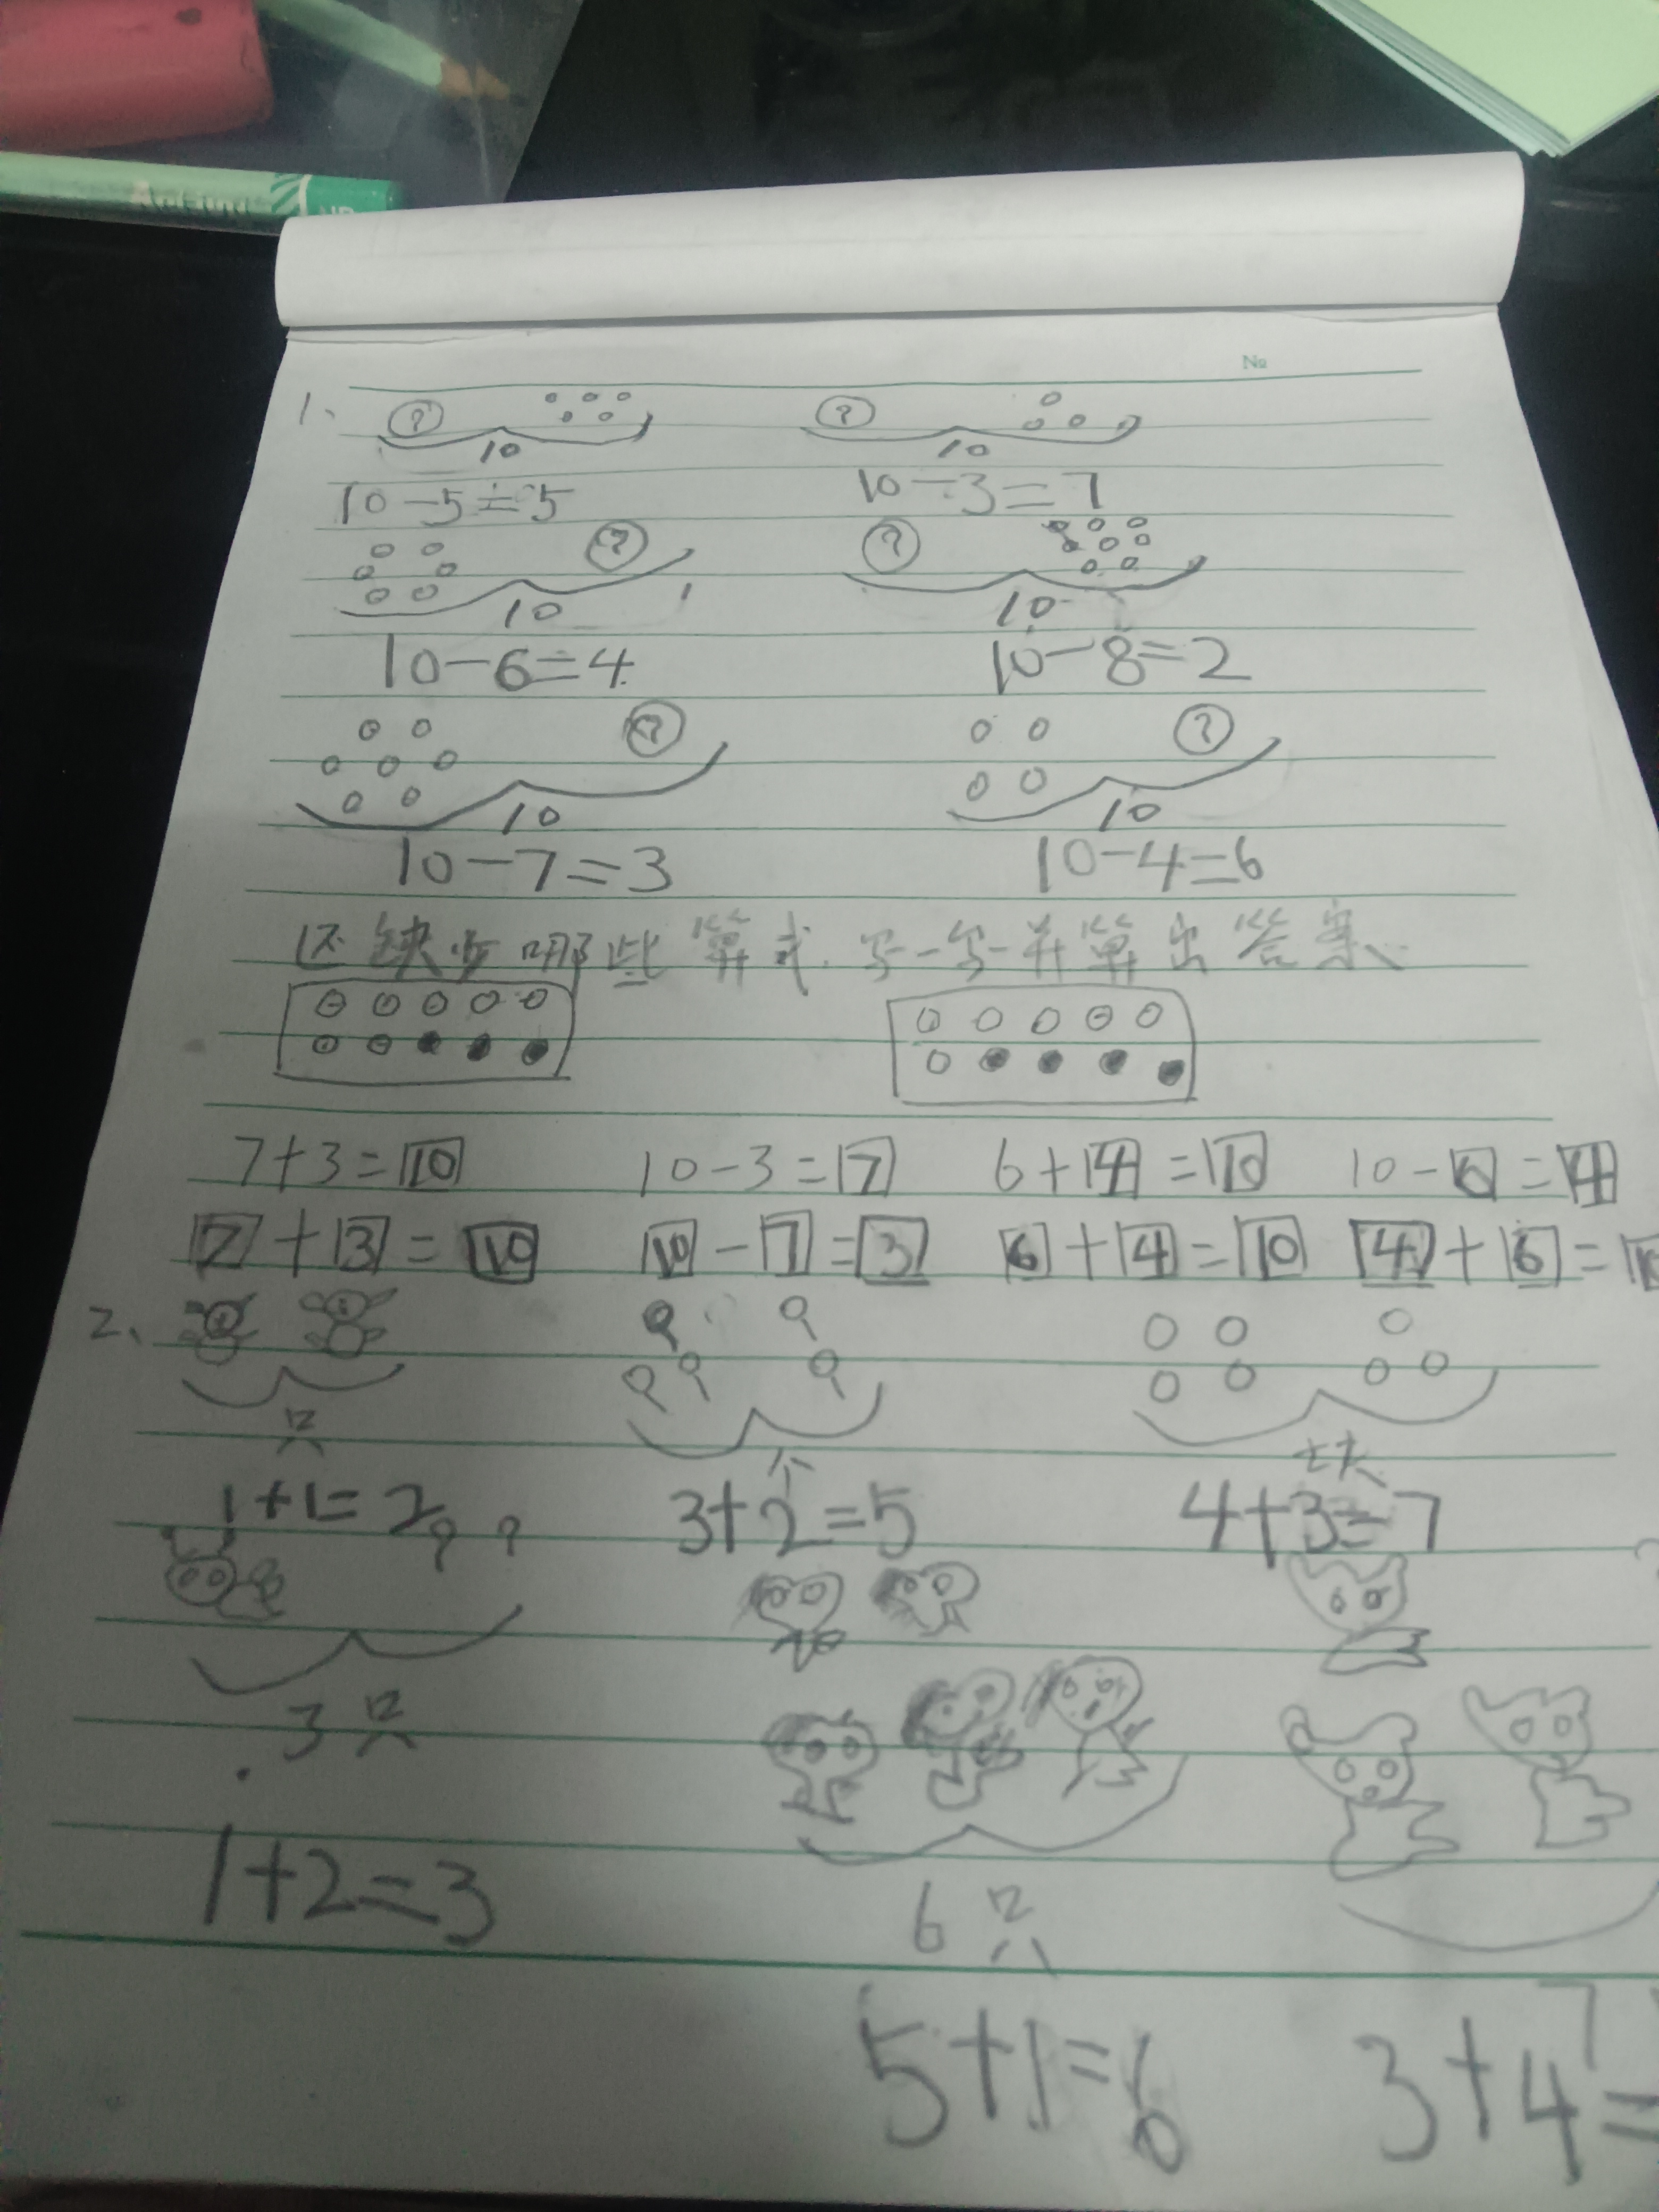 No
1、
? ?
10 10
10-5=5 10-3=7
? ?
10 10
10-6=4 10-8=2
? ?
10 10
10-7=3 10-4=6
还缺少哪些算式.写一写并算出答案、
7+3=10 10-3=7 6+4=10 10-6=4
7+3=10 10-7=3 6+4=10 4+6=
2、
只 个
1+1=2 3+2=5 4+3=7
? ?
3只
1+2=3
6只
7
5+1=6 3+4=